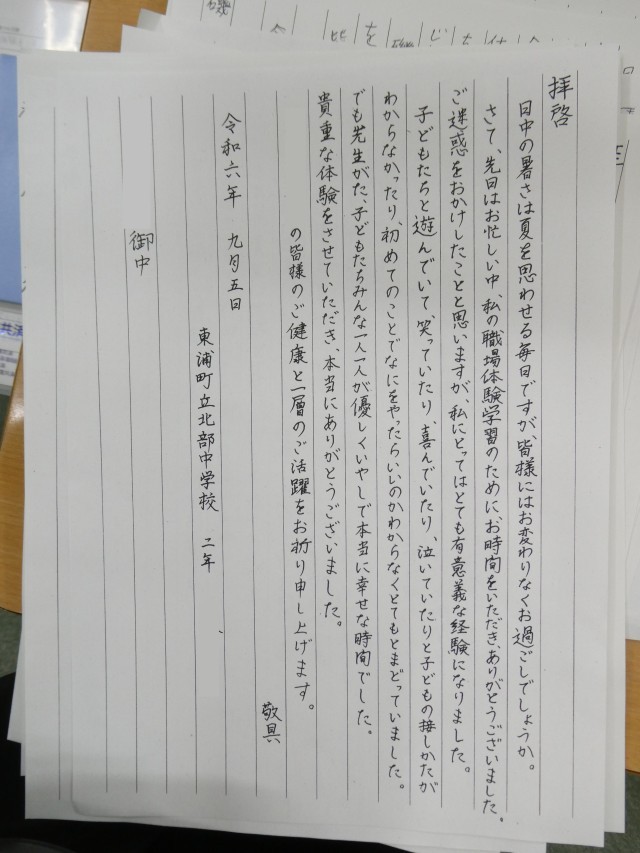 拝啓
日中の暑さは夏を思わせる毎日ですが、皆様にはお変わりなくお過ごしでしょうか。
さて、先日はお忙しい中、私の職場体験学習のために、お時間をいただき、ありがとうございました。
ご迷惑をおかけしたことと思いますが、私にとってはとても有意義な経験になりました。
子どもたちと遊んでいて、笑っていたり、喜んでいたり、泣いていたりと子どもの接しかたが
わからなかったり、初めてのことでなにをやったらいいのかわからなくとてもとまどっていました。
でも先生がた、子どもたちみんな一人一人が優しくいやしで本当に幸せな時間でした。
貴重な体験をさせていただき、本当にありがとうございました。
の皆様のご健康と一層のご活躍をお祈り申し上げます。
敬具
令和六年 九月五日
東浦町立北部中学校 二年
御中